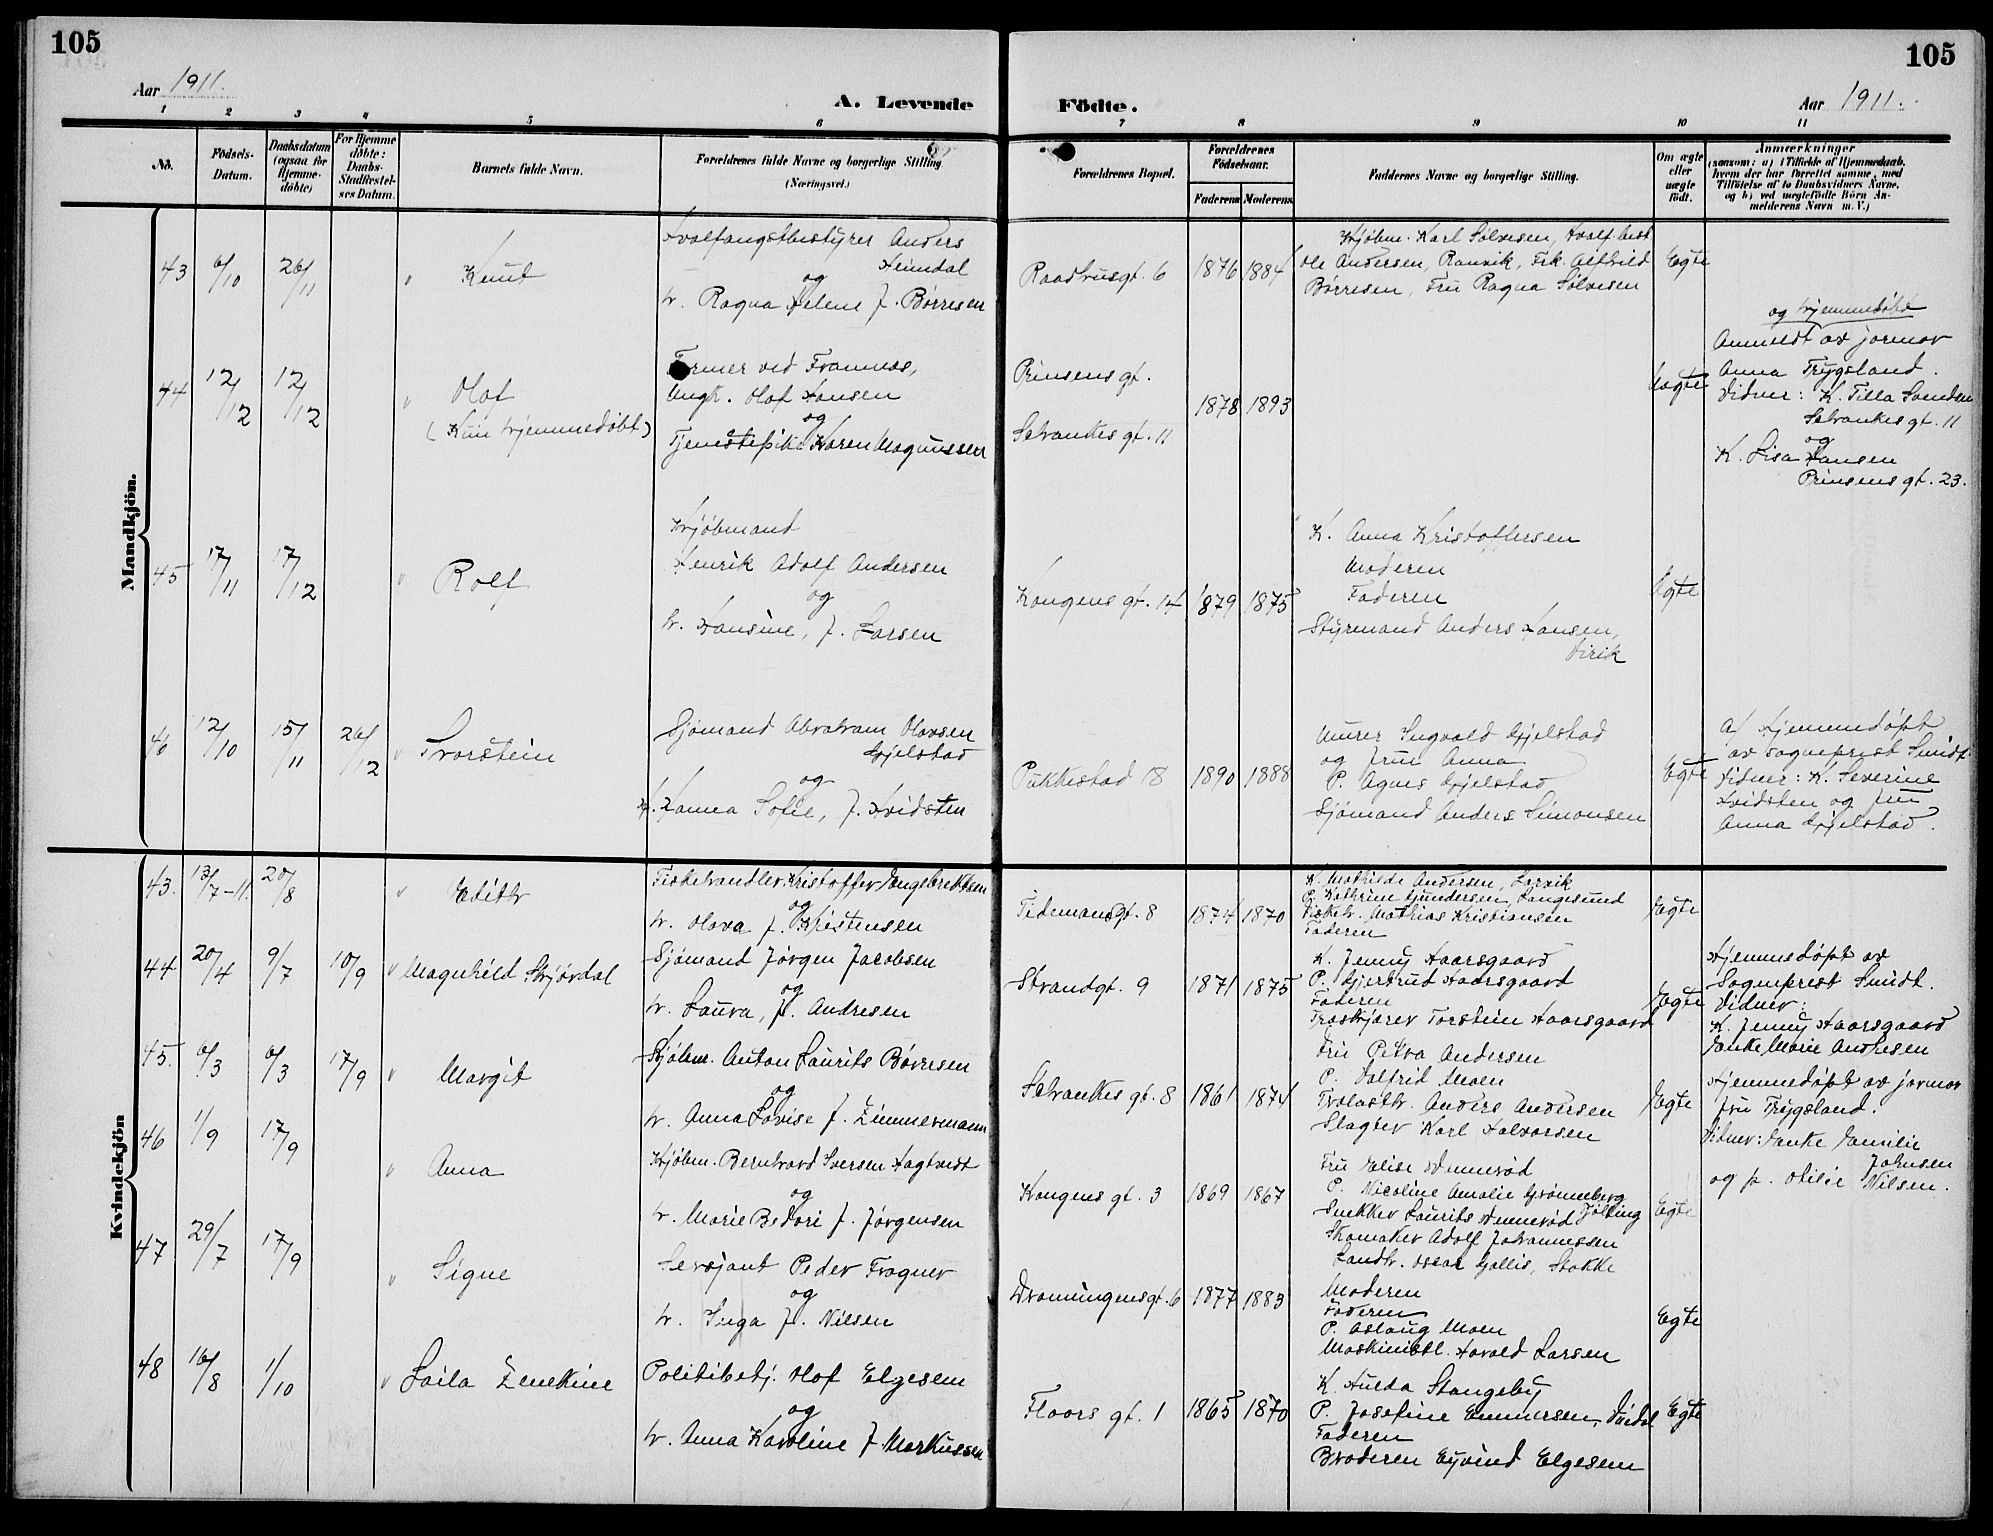 105
105
Aar 1911.
A. Levende
Födte.
Aar 1911.
1 2 3 4 5 6 7 8 9 10 11
No.
Födsels-
Datum.
Daabsdatum
(ogsaa for
Hjemme-
döbte)
For Hjemme
döbte:
Daabs-
Stadfæstel-
ses Datum.
Barnets fulde Navn.
Forældrenes fulde Navne og borgerlige Stilling
(Næringsvei.)
Forældrenes Bopæl.
Forældrenes
Födselsaar.
Faderens
Moderens
Faddernes Navne og borgerlige Stilling.
Om ægte
eller
uægte
födt.
Anmærkninger
(saasom: a) i Tilfælde af Hjemmedaab,
hvem der har forrettet samme, med
Tilföielse af to Daabsvidners Navne,
og b) ved uægtefödte Börn An-
melderens Navn m. V.)
Mandkjön.
43 6/10 26/11
Knut
Hvalfangstbestyrer Anders
Heimdal
og
h. Ragna Helene f. Børresen
Raadhusgt. 6
1876 1884
Kjøbm. Karl Sølvesen, Hvalf.best
Ole Andersen, Ranvik, Frk. Alfhild
Børresen, Fru Ragna Sølvesen
Egte
44 12/12 12/12
Olaf
(Kun hjemmedøbt)
Former ved Framnæs,
Ungk. Olaf Hansen
og
Tjenestepike Karen Magnussen
Prinsens gt.
Schankes gt. 11
1878 1893
Uægte
og hjemmedøbt
Anmeldt av jormor
Anna Trygsland.
Vidner: K. Tilla Svendsen
Schankes gt. 11
og
K. Lisa Hansen
Prinsens gt. 23.
45 17/11 17/12
Rolf
Kjøbmand
Henrik Adolf Andersen
og
h. Hansine, f. Larsen
Kongens gt. 14
1879 1875
K. Anna Kristoffersen
Moderen
Faderen
Styrmand Anders Hansen,
Virik
Egte
46 12/10 15/11 26/12
Thorstein
Sjømand Abraham Olavsen
Gjelstad
og
h. Hanna Sofie, f. Hvidsten
Pukkestad 18
1890 1888
Murer Ingvald Gjelstad
og frue Anna
P. Agnes Gjelstad
Sjømand Anders Simonsen
Egte
a/ Hjemmedøpt
av sogneprest Smidt
Vidner: K. Severine
Hvidsten og frue
Anna Gjelstad.
Kvindekjön
43. 13/7-11. 20/8
Edith
Fiskehandler Kristoffer Engebretsen
og
h. Olava f. Kristensen
Tidemansgt. 8
1874 1870
K. Mathilde Andersen, Larvik
P. Kathrine Gundersen, Langesund
Fiskeh. Mathias Kristiansen
Faderen
Egte
44 20/4 9/7 10/9
Magnhild Skjørdal
Sjømand Jørgen Jacobsen
og
h. Laura, f. Andresen
Strandgt. 9
1871 1875
K. Jenny Haarsgaard
P. Gjertrud Haarsgaard
Faderen
Traskjærer Torstein Haarsgaard
Egte
Hjemmedøpt av
Sogneprest Smidt.
Vidner:
K. Jenny Haarsgaard
Enke Marie Andresen
45. 6/3 6/3 17/9
Margit
Kjøbm. Anton Laurits Børresen
og
h. Anna Lovise f. Zimmermann
Schankes gt. 8
1861 1874
Fru Petra Andersen
P. Valfrid Moen
Trelasth. Anders Andersen
Slagter Karl Halvorsen
Egte
Hjemmedøpt av jormor
fru Trygsland.
Vidner: Enke Emilie
Johnsen
og p. Otilie Nilsen.
46 1/9 17/9
Anna
Kjøbm. Bernhard Iversen Hagtvedt
og
h. Marie Bedori f. Jørgensen
Kongens gt. 3
1869 1867
Fru Elise Unnerød
P. Nicoline Amalie Grønneberg
Snekker Laurits Unnerød Tjølling
Skomaker Adolf Johannessen
Landh. Oscar Gallis, Stokke
Egte
47 29/7 17/9
Signe
Sersjant Peder Frogner
og
h. Inga f. Nilsen
Dronningensgt. 6
1877 1883
Moderen
Faderen
P. Aslaug Moen
Maskinistl. Harald Larsen
Egte
48 16/8 1/10
Laila Zenekine
Politibetj. Olaf Elgesem
og
h. Anna Karoline f. Markussen
Floors gt. 1
1865 1870
K. Hulda Stangeby
P. Josefine Emmersen, Vindal
Faderen
Broderen Eyvind Elgesem
Egte